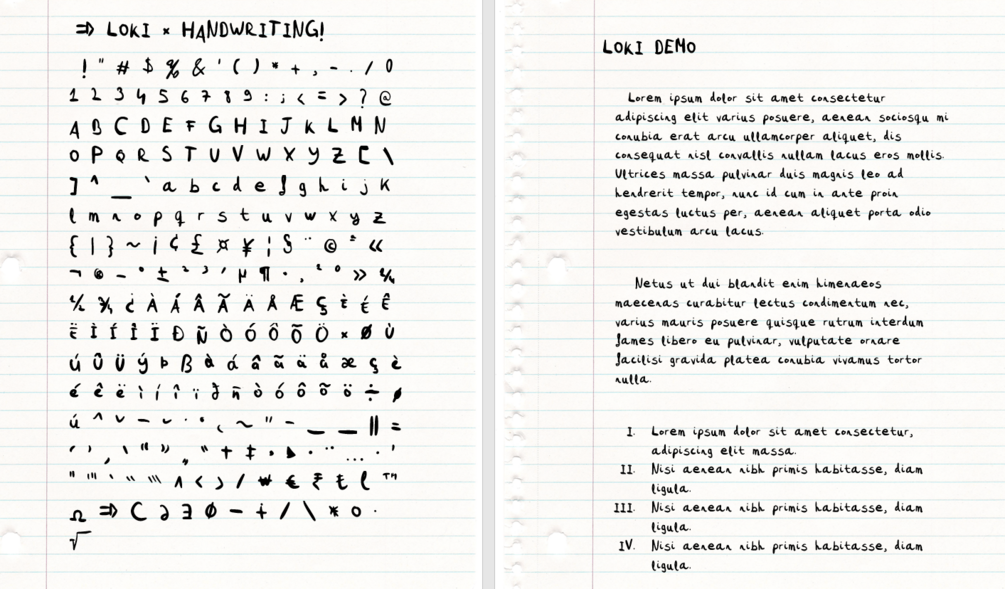 ⇒ LOKI × HANDWRITING!
! " # $ % & ' ( ) * + , - . / 0
1 2 3 4 5 6 7 8 9 : ; < = > ? @
A B C D E F G H I J K L M N
O P Q R S T U V W X Y Z [ \
] ^ _ ` a b c d e f g h i j k
l m n o p q r s t u v w x y z
{ | } ~ ¡ ¢ £ ¤ ¥ ¦ § ¨ © ª «
¬ ® ¯ ° ± ² ³ ´ µ ¶ · ¸ ¹ º » ¼
½ ¾ ¿ À Á Â Ã Ä Å Æ Ç è é Ê
ë Ì Í Î Ï Ð Ñ Ò Ó Ô Õ Ö × Ø Ù
ú Û Ü ý Þ ß à á â ã ä å æ ç è
é ê ë ì í î ï ð ñ ò ó ô õ ö ÷ ø
€
Ω ⇒ ∂ ∃ ∅ − ∔ ∕ ∖ ∗ ∘ ∙
√
LOKI DEMO
Lorem ipsum dolor sit amet consectetur
adipiscing elit varius posuere, aenean sociosqu mi
conubia erat arcu ullamcorper aliquet, dis
consequat nisl convallis nullam lacus eros mollis.
Ultrices massa pulvinar duis magnis leo ad
hendrerit tempor, nunc id cum in ante proin
egestas luctus per, aenean aliquet porta odio
vestibulum arcu lacus.
Netus ut dui blandit enim himenaeos
maecenas curabitur lectus condimentum nec,
varius mauris posuere quisque rutrum interdum
fames libero eu pulvinar, vulputate ornare
facilisi gravida platea conubia vivamus tortor
nulla.
I. Lorem ipsum dolor sit amet consectetur,
adipiscing elit massa.
II. Nisi aenean nibh primis habitasse, diam
ligula.
III. Nisi aenean nibh primis habitasse, diam
ligula.
IV. Nisi aenean nibh primis habitasse, diam
ligula.